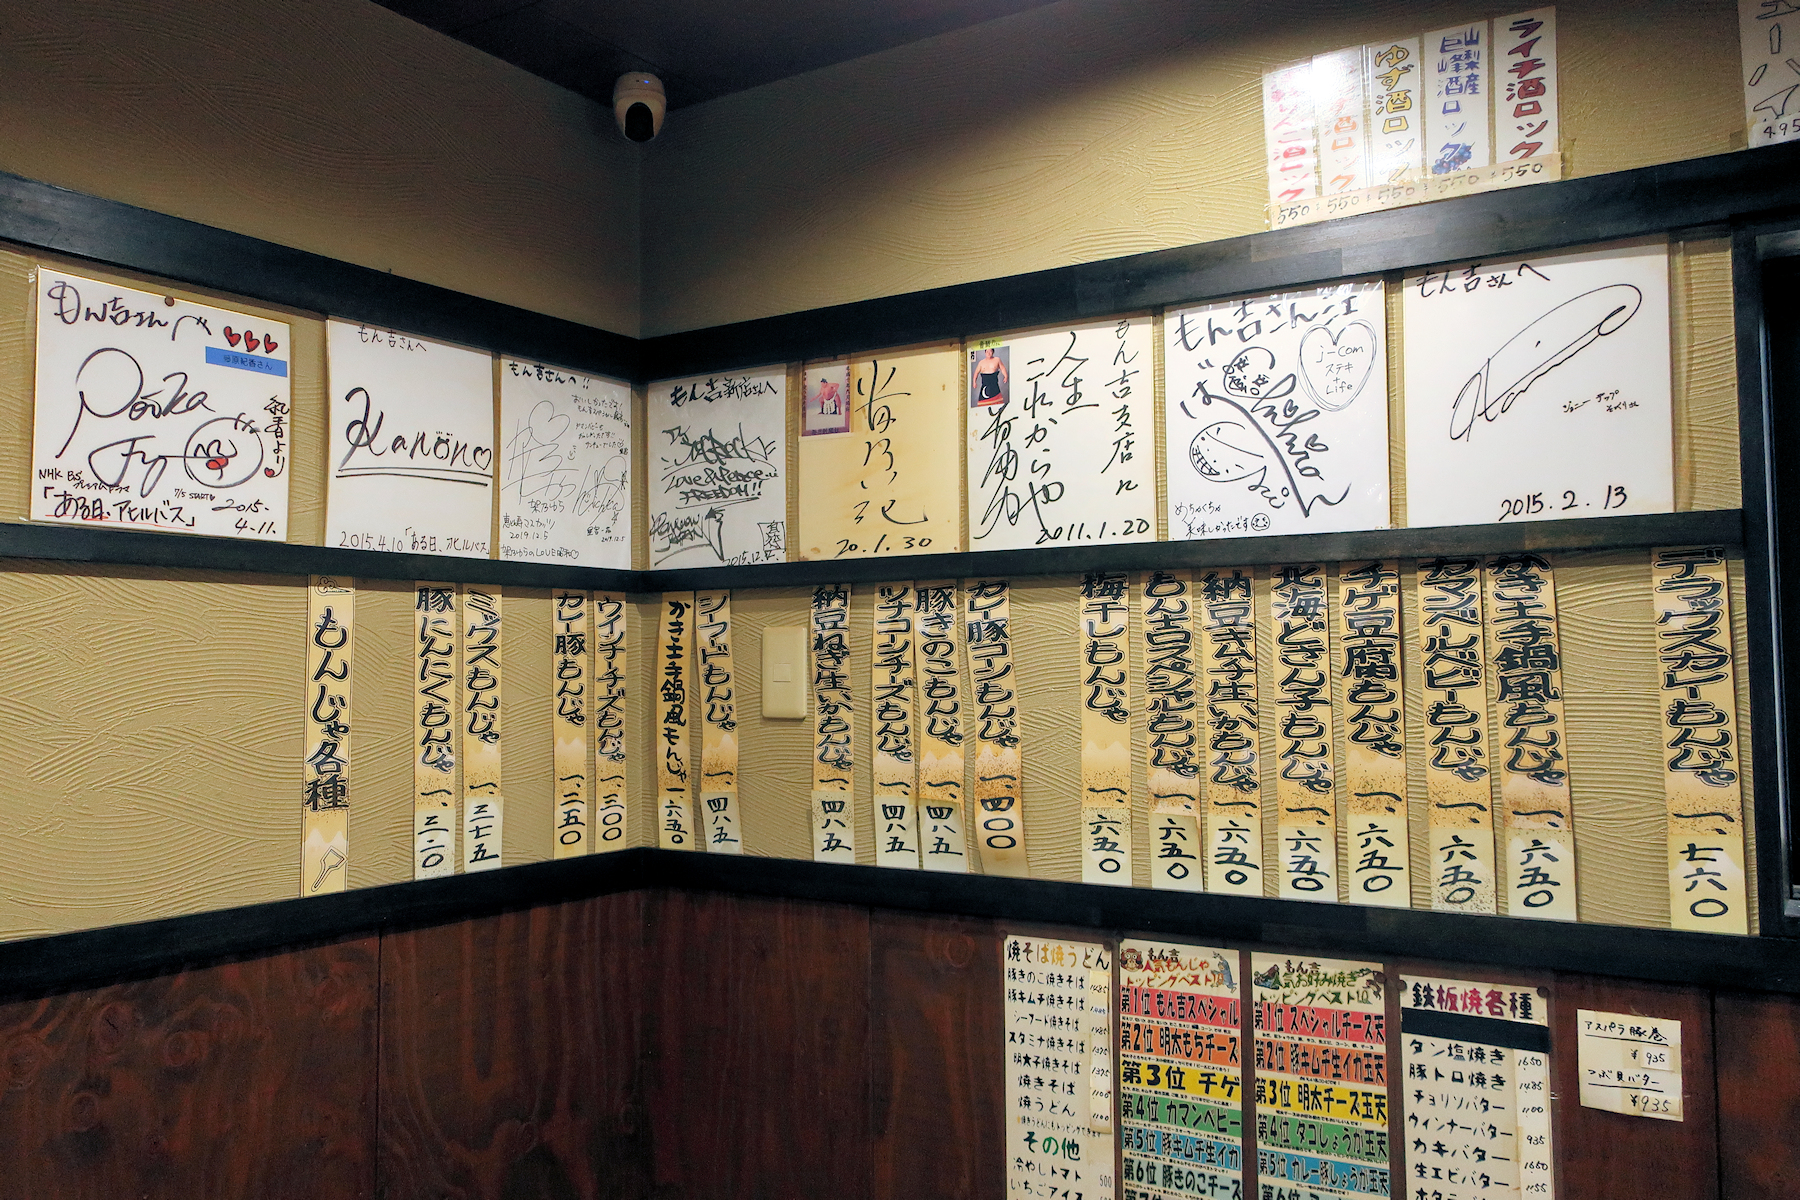 ゆず酒ロック
山梨産
巨峰酒ロック
ライチ酒ロック
550
550
550
550
550
495
もん吉さんへ
藤原紀香さん
紀香より
NHK BS
プレミアムドラマ
7/5 START
「ある日、アヒルバス」
2015.
4.11.
もん吉さんへ
Kanon
2015.4.10「ある日、アヒルバス」
もん吉さんへ!!
2019.12.5
もん吉新店さんへ
Love & Peace
FREEDOM!!
2015.12.
20.1.30
もん吉支店に
人生
これからや
2011.1.20
もん吉さん江
j-com
ステキ
+
Life
めちゃくちゃ
美味しかったです
もん吉さんへ
2015.2.13
もんじゃ各種
豚にんにくもんじゃ 一、三二〇
ミックスもんじゃ 一、三七五
カレー豚もんじゃ 一、二五〇
ウインナーチーズもんじゃ 一、三〇〇
かき土手鍋風もんじゃ 一六五〇
シーフードもんじゃ 一、四八五
納豆ねぎ生いかもんじゃ 一、四八五
ツナコーンチーズもんじゃ 一、四八五
豚きのこもんじゃ 一、四八五
カレー豚コーンもんじゃ 一、四〇〇
梅干しもんじゃ 一、六五〇
もん吉スペシャルもんじゃ 一、六五〇
納豆キムチ生いかもんじゃ 一、六五〇
北海どさん子もんじゃ 一、六五〇
チゲ豆腐もんじゃ 一、六五〇
カマンベールベビーもんじゃ 一、六五〇
かき土手鍋風もんじゃ 一、六五〇
デラックスカレーもんじゃ 一、七六〇
焼そば焼うどん
豚きのこ焼きそば 1485
豚キムチ焼きそば
シーフード焼そば 1485
スタミナ焼きそば 1375
明太子焼きそば 1375
焼きそば 1100
焼うどん 1100
その他
冷やしトマト 500
いちごアイス
もん吉
人気もんじゃ
トッピングベスト10
第1位 もん吉スペシャル
第2位 明太もちチーズ
第3位 チゲ
第4位 カマンベビー
第5位 豚キムチ生イカ
第6位 豚きのこチーズ
もん吉
人気お好み焼き
トッピングベスト10
第1位 スペシャルチーズ天
第2位 豚キムチ生イカ玉天
第3位 明太チーズ玉天
第4位 タコしょうが玉天
第5位 カレー豚しょうが玉天
第6位
鉄板焼各種
タン塩焼き 1650
豚トロ焼き 1485
チョリソバター 1100
ウィンナーバター 935
カキバター 1650
生エビバター 1155
アスパラ豚巻
¥935
つぶ貝バター
¥935